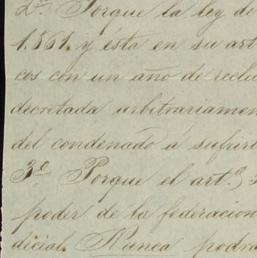 2.º Porque la ley de
1.861. y ésta en su art
cos con un año de reclu
decretada arbitrariamen
del condenado á sufrir
3.º Porque el art.º 3
poder de la federacion
dicial. Nunca podra